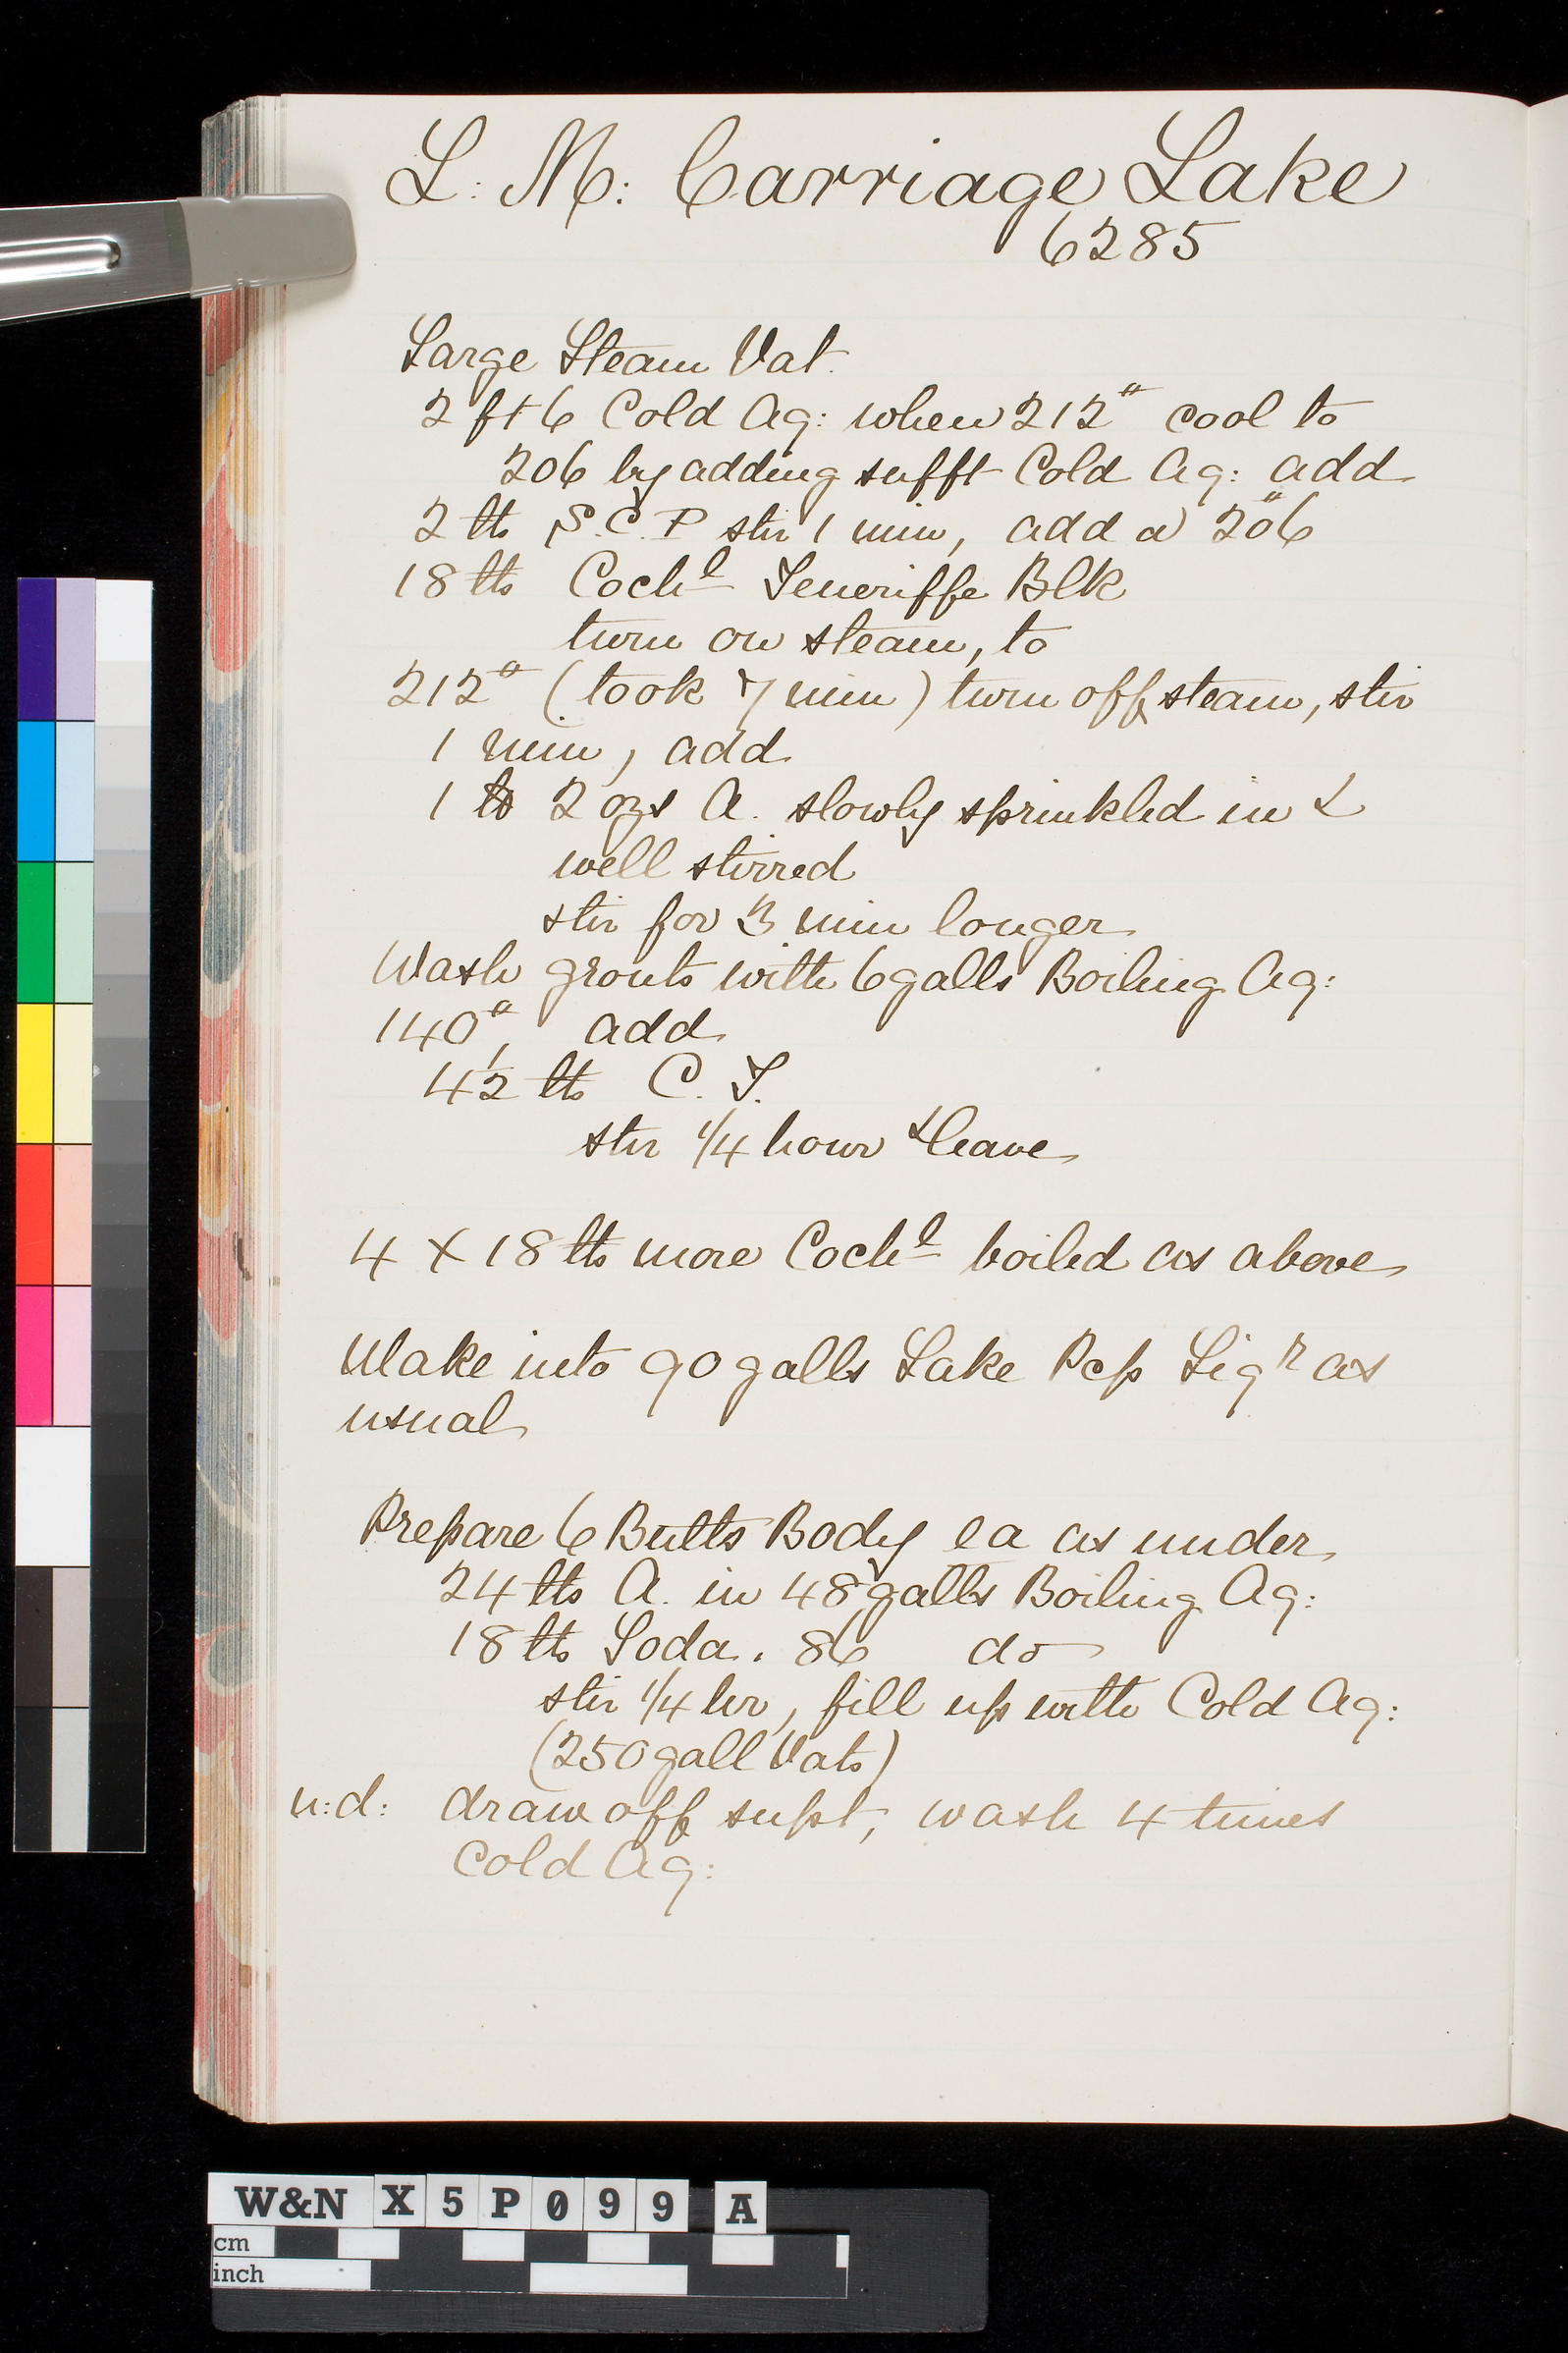 L: M: Carriage Lake
6285
Large Steam Vat.
2 ft 6 Cold Aq: when 212° cool to
206 by adding sufft Cold Aq: add
2 lb S.C.P stir 1 min, add a 206°
18 lbs Cochl Teneriffe Blk
turn on steam, to
212° (took 7 min) turn off steam, stir
1 min, add
1 lb 2 ozs A. slowly sprinkled in &
well stirred
stir for 3 min longer
Wash grouts with 6 galls Boiling Aq:
140°, add
4½ lbs C. T.
stir 1/4 hour & leave
4 X 18 lbs more Cochl boiled as above
Make into 90 galls Lake Pcp Liqr as
usual
Prepare 6 Butts Body ea as under
24 lbs A. in 48 galls Boiling Aq:
18 lbs Soda. 86 do
stir 1/4 hr, fill up with Cold Aq:
(250 gall Vats)
n:d: draw off supt, wash 4 times
Cold Aq:
W&N X5P099 A
cm
inch